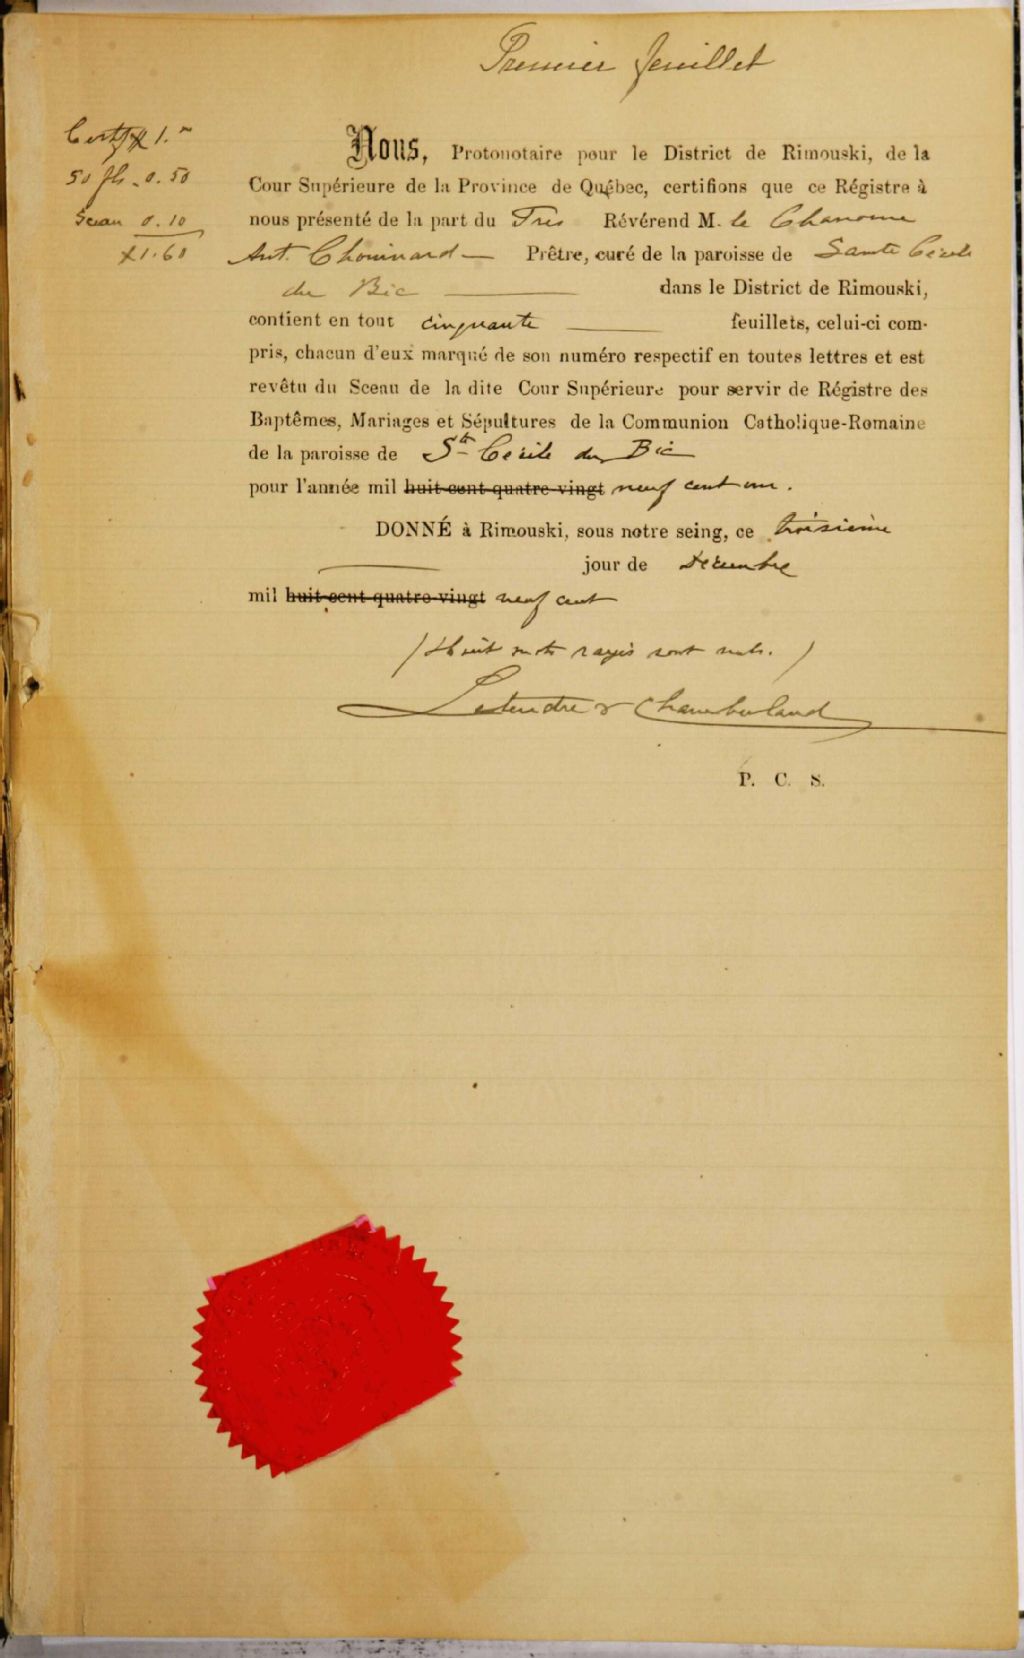 Premier feuillet
Certif $ 1.00
50 fls. 0.50
Sceau 0.10
$1.60
Nous, Protonotaire pour le District de Rimouski, de la
Cour Supérieure de la Province de Québec, certifions que ce Régistre à
nous présenté de la part du Très Révérend M. le Chanoine
Ant. Chouinard Prêtre, curé de la paroisse de Sainte Cécile
du Bic dans le District de Rimouski,
contient en tout cinquante feuillets, celui-ci com-
pris, chacun d'eux marqué de son numéro respectif en toutes lettres et est
revêtu du Sceau de la dite Cour Supérieure pour servir de Régistre des
Baptêmes, Mariages et Sépultures de la Communion Catholique-Romaine
de la paroisse de Ste Cécile du Bic
pour l'année mil huit cent quatre-vingt neuf cent un.
DONNÉ à Rimouski, sous notre seing, ce troisième
jour de Décembre
mil huit cent quatre-vingt neuf cent
(Huit mots rayés sont nuls.)
Letendre & Chamberland
P. C. S.